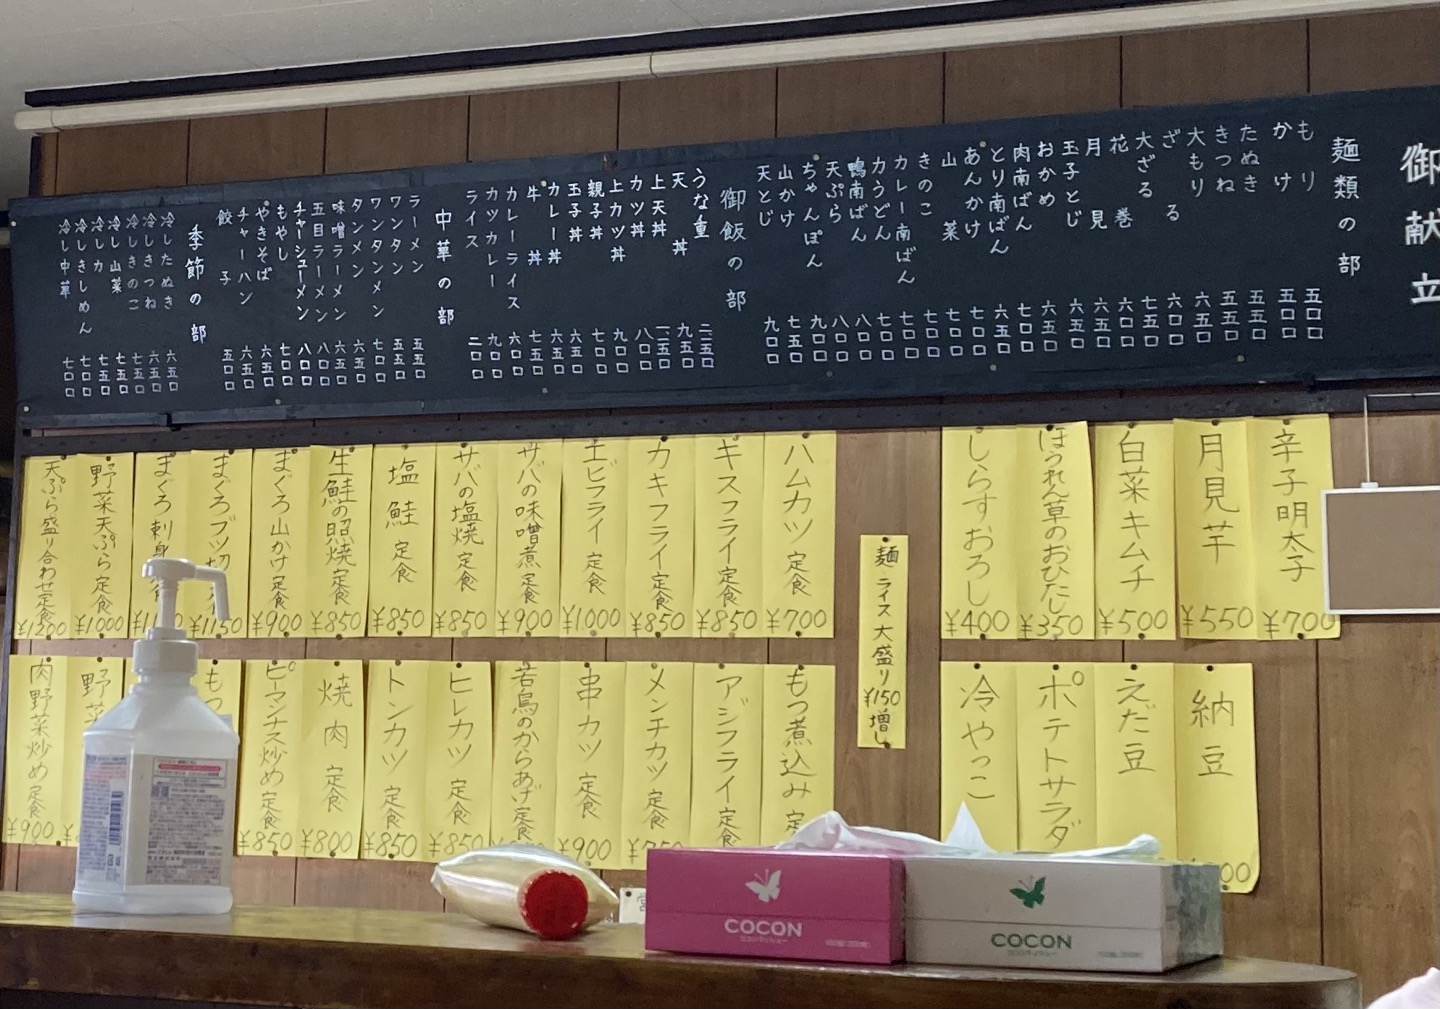 御献立
麺類の部
もり 五〇〇
かけ 五〇〇
たぬき 五五〇
きつね 五五〇
大もり 六五〇
ざる 六〇〇
大ざる 七五〇
花巻 六〇〇
月見 六五〇
玉子とじ 六五〇
おかめ 六五〇
肉南ばん 七〇〇
とり南ばん 六五〇
あんかけ 七〇〇
山菜 七〇〇
きのこ 七〇〇
カレー南ばん 七〇〇
力うどん 七〇〇
鴨南ばん 八〇〇
天ぷら 八〇〇
ちゃんぽん 九〇〇
山かけ 七五〇
天とじ 九〇〇
御飯の部
うな重 二一五〇
天丼 九五〇
上天丼 一一五〇
カツ丼 八〇〇
上カツ丼 九〇〇
親子丼 七〇〇
玉子丼 六五〇
カレー丼 六五〇
牛丼 七五〇
カレーライス 六〇〇
カツカレー 九〇〇
ライス 二〇〇
中華の部
ラーメン 五五〇
ワンタン 五五〇
ワンタンメン 七〇〇
タンメン 六五〇
味噌ラーメン 六五〇
五目ラーメン 八〇〇
チャーシューメン 八〇〇
もやし 七〇〇
やきそば 六五〇
チャーハン 六五〇
餃子 五〇〇
季節の部
冷したぬき 六五〇
冷しきつね 六五〇
冷しきのこ 七五〇
冷し山菜 七五〇
冷し力 七五〇
冷しきしめん 七〇〇
冷し中華 七〇〇
辛子明太子 ¥700
月見芋 ¥550
白菜キムチ ¥500
ほうれん草のおひたし ¥350
しらすおろし ¥400
麺 ライス 大盛り ¥150 増し
ハムカツ 定食 ¥700
キスフライ定食 ¥850
カキフライ定食 ¥850
エビフライ 定食 ¥1000
サバの味噌煮定食 ¥900
サバの塩焼 定食 ¥850
塩鮭 定食 ¥850
生鮭の照焼定食 ¥850
まぐろ山かけ定食 ¥900
まぐろブツ切 ¥1150
まぐろ刺身
野菜天ぷら定食 ¥1000
天ぷら盛り合わせ定食 ¥1200
納豆
えだ豆
ポテトサラダ
冷やっこ
もつ煮込み 定
アジフライ定食
メンチカツ 定食
串カツ 定食 ¥900
若鳥のからあげ定食
ヒレカツ 定食 ¥850
トンカツ 定食 ¥850
焼肉 定食 ¥800
ピーマンナス炒め 定食 ¥850
もつ
野菜
肉野菜炒め定食 ¥900
COCON
COCON